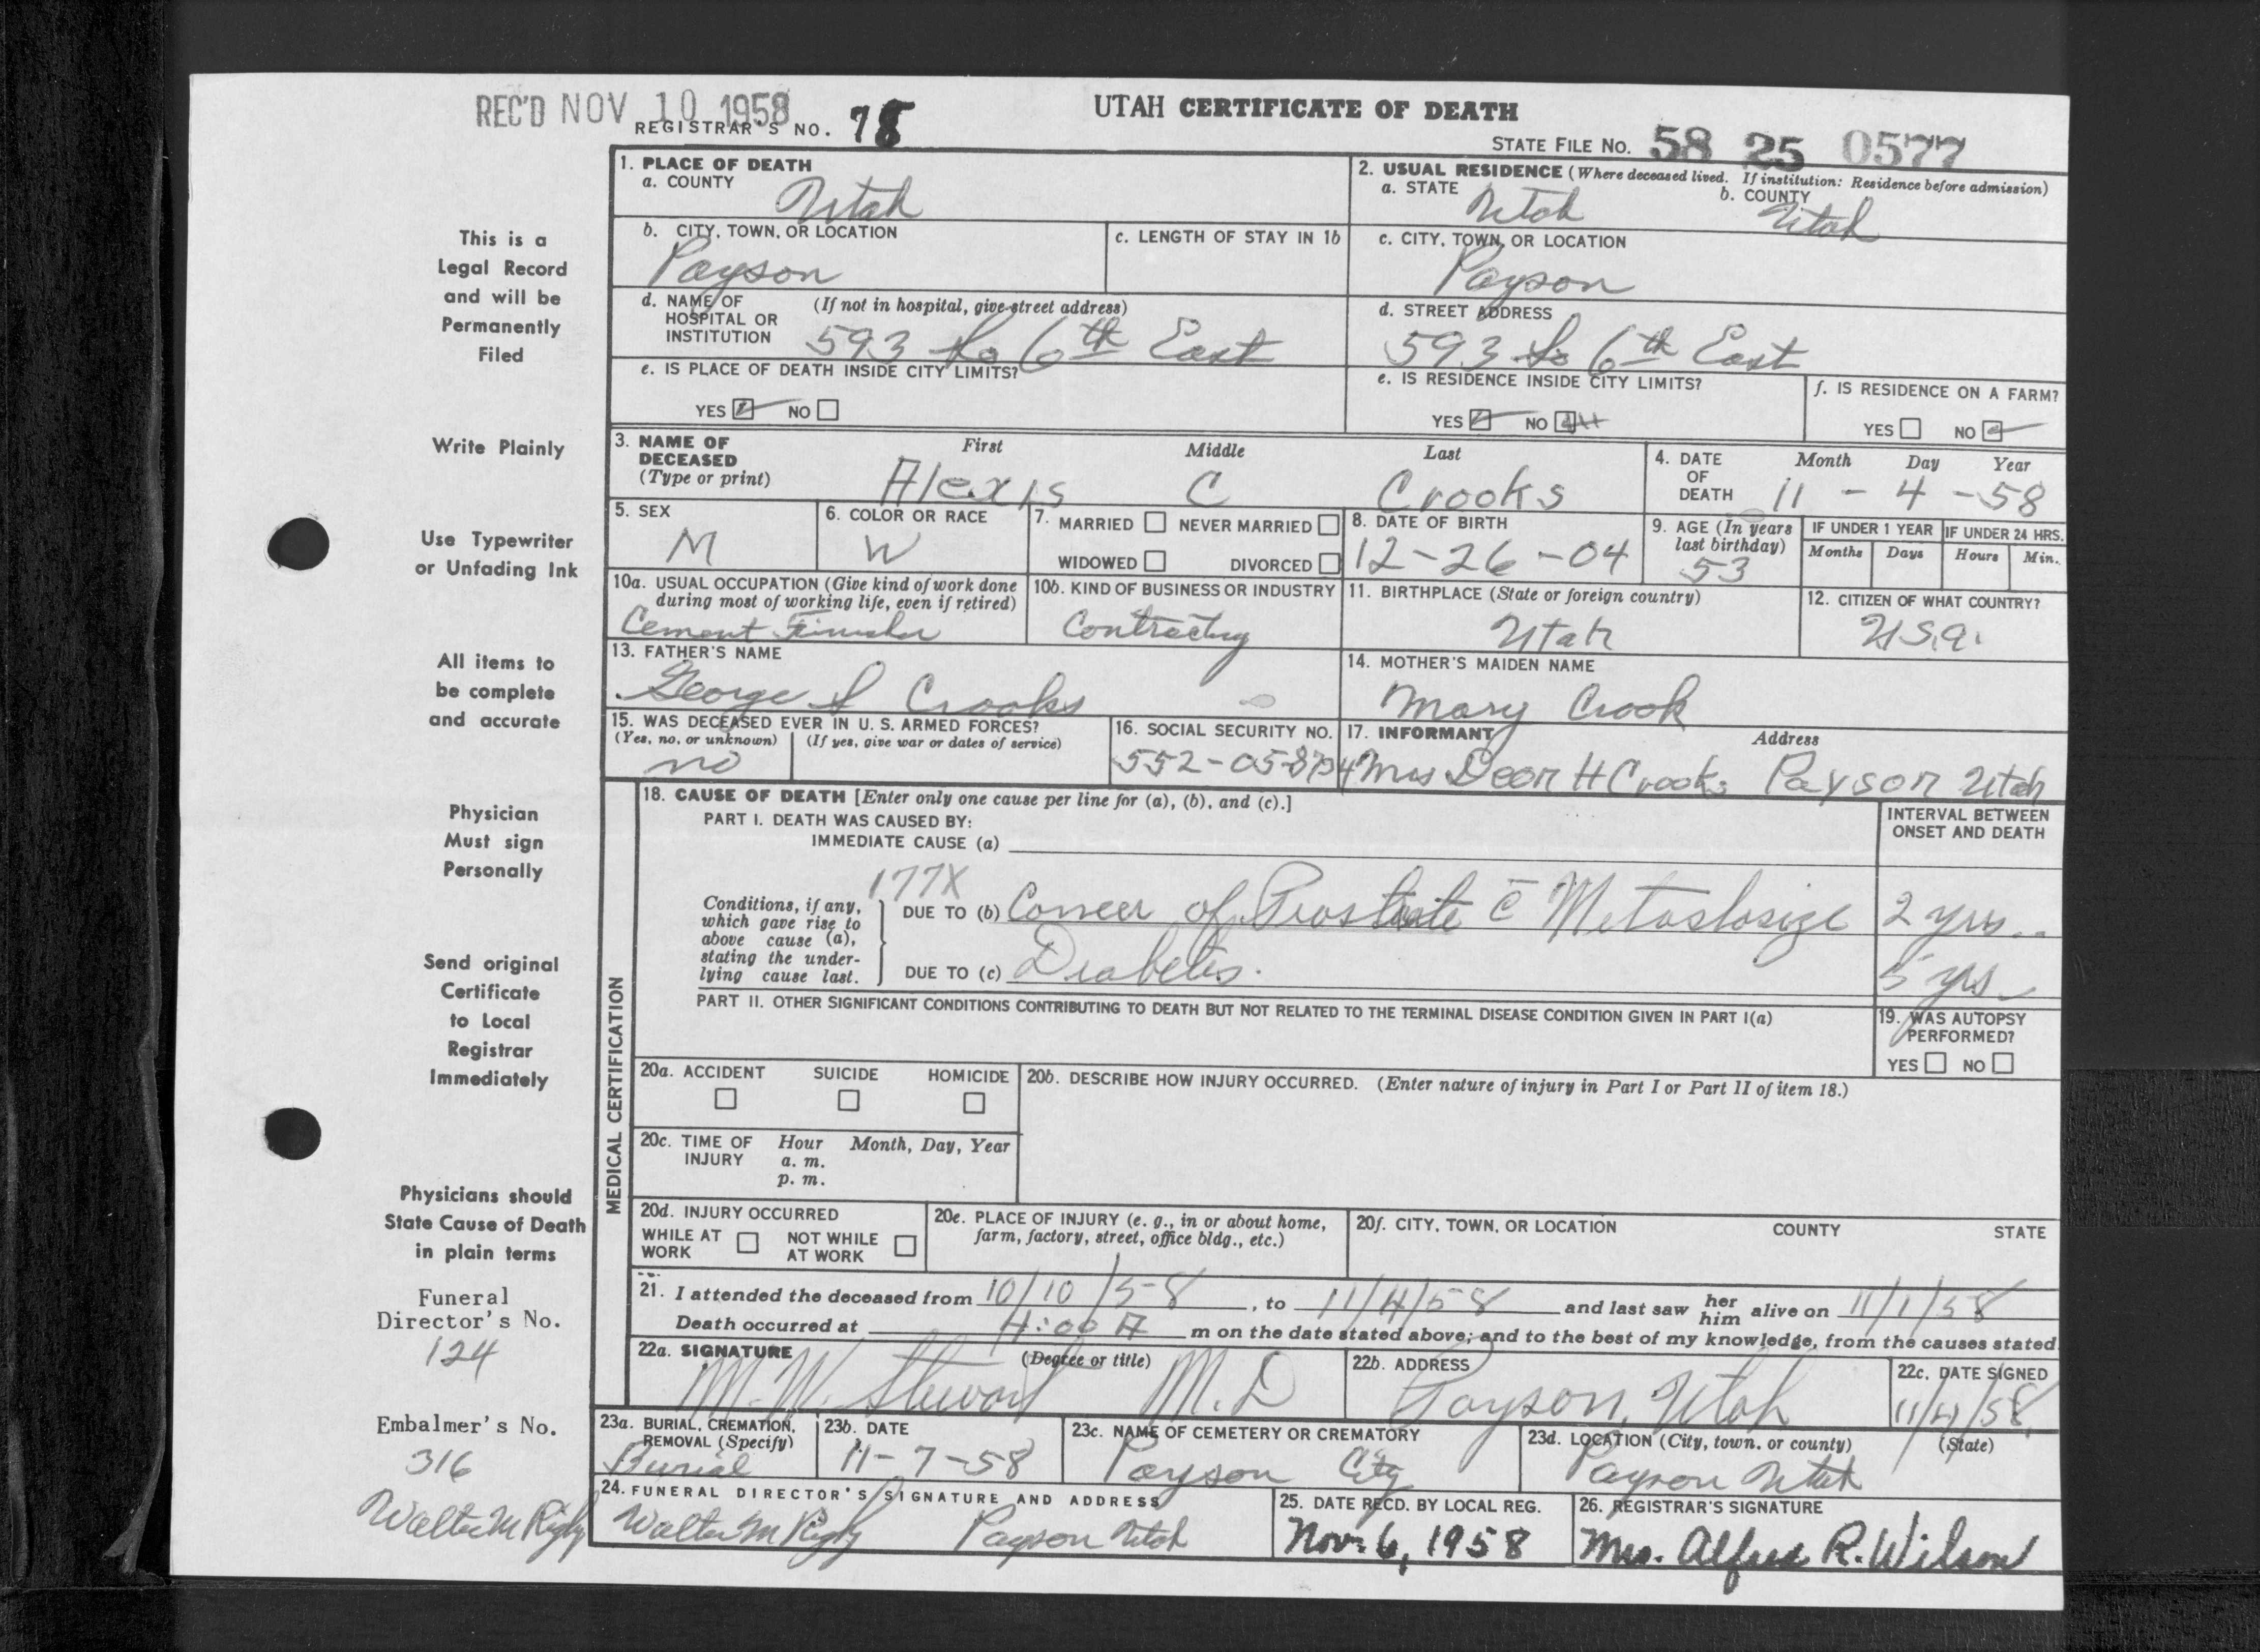 REC'D NOV 10 1958
UTAH CERTIFICATE OF DEATH
REGISTRAR'S NO. 78
STATE FILE NO. 58 25 0577
This is a
Legal Record
and will be
Permanently
Filed
Write Plainly
Use Typewriter
or Unfading Ink
All items to
be complete
and accurate
Physician
Must sign
Personally
Send original
Certificate
to Local
Registrar
Immediately
Physicians should
State Cause of Death
in plain terms
Funeral
Director's No.
124
Embalmer's No.
316
Walter M Rigby
1. PLACE OF DEATH
a. COUNTY Utah
2. USUAL RESIDENCE (Where deceased lived. If institution: Residence before admission)
a. STATE Utah b. COUNTY Utah
b. CITY, TOWN, OR LOCATION
Payson
c. LENGTH OF STAY IN 1b
c. CITY, TOWN, OR LOCATION
Payson
d. NAME OF (If not in hospital, give street address)
HOSPITAL OR
INSTITUTION 593 So 6th East
d. STREET ADDRESS
593 So 6th East
e. IS PLACE OF DEATH INSIDE CITY LIMITS?
YES NO
e. IS RESIDENCE INSIDE CITY LIMITS?
YES NO
f. IS RESIDENCE ON A FARM?
YES NO
3. NAME OF DECEASED (Type or print)
First Middle Last
Alexis C Crooks
4. DATE OF DEATH
Month Day Year
11 - 4 - 58
5. SEX
M
6. COLOR OR RACE
W
7. MARRIED NEVER MARRIED
WIDOWED DIVORCED
8. DATE OF BIRTH
12-26-04
9. AGE (In years last birthday)
53
IF UNDER 1 YEAR IF UNDER 24 HRS.
Months Days Hours Min.
10a. USUAL OCCUPATION (Give kind of work done
during most of working life, even if retired)
Cement Finisher
10b. KIND OF BUSINESS OR INDUSTRY
Contracting
11. BIRTHPLACE (State or foreign country)
Utah
12. CITIZEN OF WHAT COUNTRY?
U.S.A.
13. FATHER'S NAME
George S Crooks
14. MOTHER'S MAIDEN NAME
Mary Crook
15. WAS DECEASED EVER IN U. S. ARMED FORCES?
(Yes, no, or unknown) (If yes, give war or dates of service)
no
16. SOCIAL SECURITY NO.
552-05-8794
17. INFORMANT Address
Mrs Deon H Crooks Payson Utah
MEDICAL CERTIFICATION
18. CAUSE OF DEATH [Enter only one cause per line for (a), (b), and (c).]
PART I. DEATH WAS CAUSED BY:
IMMEDIATE CAUSE (a)
INTERVAL BETWEEN
ONSET AND DEATH
177X
Conditions, if any,
which gave rise to
above cause (a),
stating the under-
lying cause last.
DUE TO (b) Cancer of Prostate c̄ Metastasize 2 yrs.
DUE TO (c) Diabetis. 5 yrs
PART II. OTHER SIGNIFICANT CONDITIONS CONTRIBUTING TO DEATH BUT NOT RELATED TO THE TERMINAL DISEASE CONDITION GIVEN IN PART I(a)
19. WAS AUTOPSY
PERFORMED?
YES NO
20a. ACCIDENT SUICIDE HOMICIDE
20b. DESCRIBE HOW INJURY OCCURRED. (Enter nature of injury in Part I or Part II of item 18.)
20c. TIME OF INJURY
Hour Month, Day, Year
a. m.
p. m.
20d. INJURY OCCURRED
WHILE AT WORK NOT WHILE AT WORK
20e. PLACE OF INJURY (e. g., in or about home,
farm, factory, street, office bldg., etc.)
20f. CITY, TOWN, OR LOCATION COUNTY STATE
21. I attended the deceased from 10/10/58, to 11/4/58 and last saw her him alive on 11/1/58
Death occurred at 4:00 A m on the date stated above; and to the best of my knowledge, from the causes stated
22a. SIGNATURE (Degree or title)
M. W. Stewart M.D
22b. ADDRESS
Payson, Utah
22c. DATE SIGNED
11/4/58
23a. BURIAL, CREMATION,
REMOVAL (Specify)
Burial
23b. DATE
11-7-58
23c. NAME OF CEMETERY OR CREMATORY
Payson City
23d. LOCATION (City, town, or county) (State)
Payson Utah
24. FUNERAL DIRECTOR'S SIGNATURE AND ADDRESS
Walter M Rigby Payson Utah
25. DATE RECD. BY LOCAL REG.
Nov. 6, 1958
26. REGISTRAR'S SIGNATURE
Mrs. Alfred R. Wilson